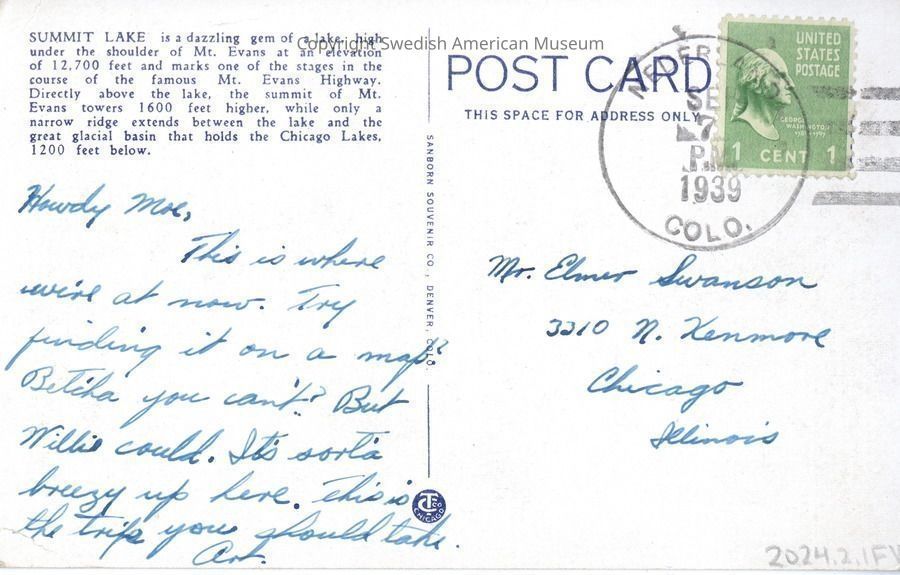 SUMMIT LAKE is a dazzling gem of a lake, high
under the shoulder of Mt. Evans at an elevation
of 12,700 feet and marks one of the stages in the
course of the famous Mt. Evans Highway.
Directly above the lake, the summit of Mt.
Evans towers 1600 feet higher, while only a
narrow ridge extends between the lake and the
great glacial basin that holds the Chicago Lakes,
1200 feet below.
Copyright Swedish American Museum
Howdy Moe,
This is where
we're at now. Try
finding it on a map?
Betcha you can't? But
Willie could. It's sorta
breezy up here. This is
the trip you should take.
Art.
SANBORN SOUVENIR CO., DENVER, COLO.
CHICAGO
POST CARD
THIS SPACE FOR ADDRESS ONLY
SE
7
P.M.
1939
COLO.
UNITED
STATES
POSTAGE
GEORGE
WASHINGTON
1 CENT 1
Mr. Elmer Swanson
3310 N. Kenmore
Chicago
Illinois
2024.2.1F